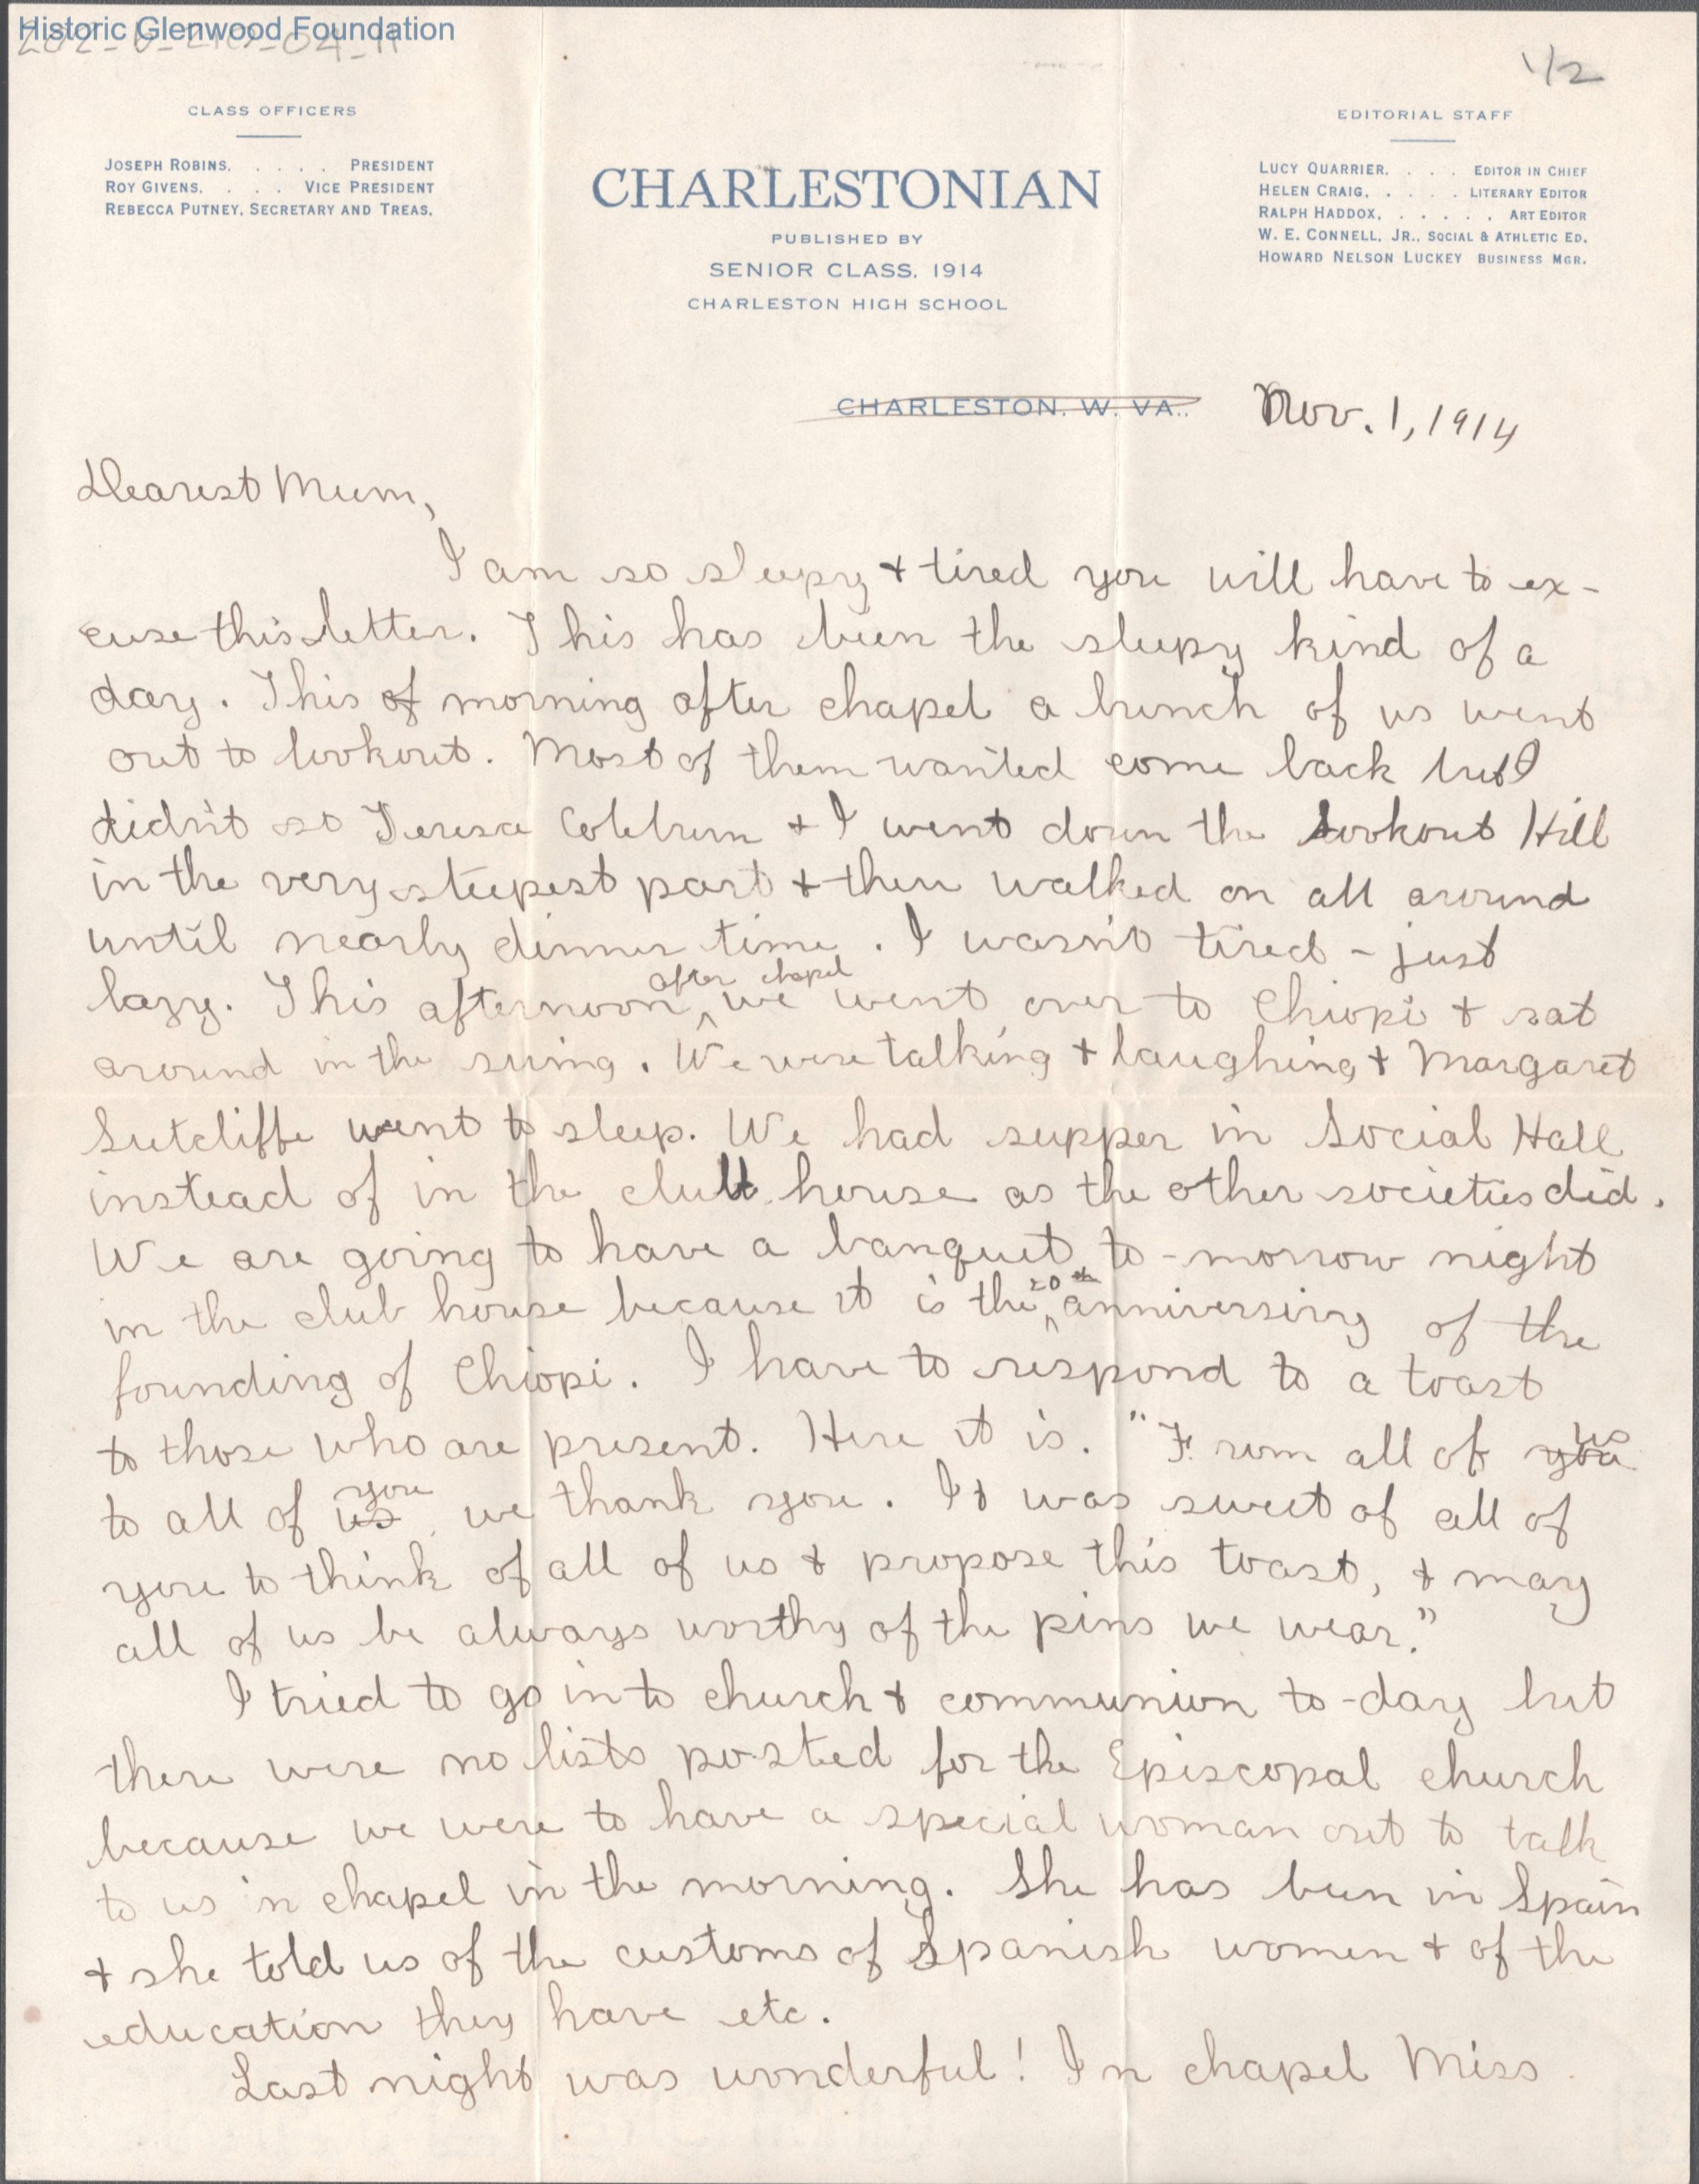 Historic Glenwood Foundation
1/2
CLASS OFFICERS
JOSEPH ROBINS. . . . . PRESIDENT
ROY GIVENS. . . . VICE PRESIDENT
REBECCA PUTNEY. SECRETARY AND TREAS.
CHARLESTONIAN
PUBLISHED BY
SENIOR CLASS. 1914
CHARLESTON HIGH SCHOOL
EDITORIAL STAFF
LUCY QUARRIER. . . . EDITOR IN CHIEF
HELEN CRAIG. . . . . LITERARY EDITOR
RALPH HADDOX. . . . . . ART EDITOR
W. E. CONNELL, JR., SOCIAL & ATHLETIC ED.
HOWARD NELSON LUCKEY BUSINESS MGR.
CHARLESTON, W. VA., Nov. 1, 1914
Dearest Mum,
I am so sleepy + tired you will have to ex-
cuse this letter. This has been the sleepy kind of a
day. This of morning after chapel a bunch of us went
out to lookout. Most of them wanted come back but I
didn't so Teresa + I went down the Lookout Hill
in the very steepest part + then walked on all around
until nearly dinner time. I wasn't tired - just
lazy. This afternoon after chapel we went over to Chiopi + sat
around in the swing. We were talking + laughing + Margaret
Sutcliffe went to sleep. We had supper in Social Hall
instead of in the club house as the other societies did.
We are going to have a banquet to-morrow night
in the club house because it is the 20th anniversiry of the
founding of Chiopi. I have to respond to a toast
to those who are present. Here it is. "From all of you us
to all of us you we thank you. It was sweet of all of
you to think of all of us + propose this toast, + may
all of us be always worthy of the pins we wear."
I tried to go in to church + communion to-day but
there were no lists posted for the Episcopal church
because we were to have a special woman out to talk
to us in chapel in the morning. She has been in Spain
+ she told us of the customs of Spanish women + of the
education they have etc.
Last night was wonderful! In chapel Miss